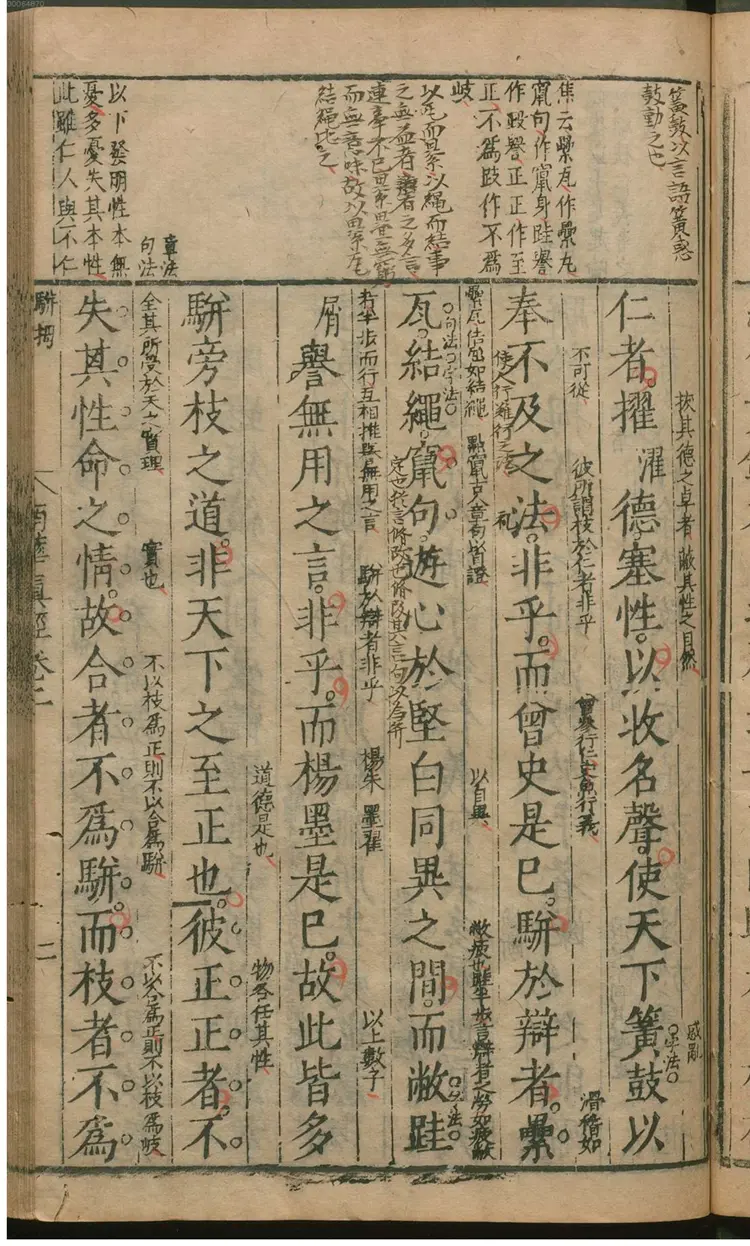 簧鼓以言語簧惑
鼓動之也
焦云纍瓦作纍丸
竄句作竄身跬譽
作毀譽正正作至
正不爲跂作不爲
岐
以瓦而累以繩而結事
之無益者
而無意味故以累瓦
結繩比之
以下發明性本無
憂多憂失其本性
此雖仁人與不仁
章法
句法
拔其德之卓者 蔽其性之自然
仁者擢濯德塞性以收名聲使天下簧鼓以
惑亂
字法
不可從 彼所謂枝於仁者非乎 曾參行仁史魚行義 滑稽如
奉不及之法非乎而曾史是已駢於辯者纍
使人行難行之法
以自異
瓦結繩竄句遊心於堅白同異之間而敝跬
句法字法
字法
者半步而行互相推與無用之言 駢於辯者非乎 楊朱 墨翟 以上數子
屑
譽無用之言非乎而楊墨是已故此皆多
道德是也 物各任其性
駢旁枝之道非天下之至正也彼正正者不
全其所受於天之實理 實也 不以枝爲正則不以合爲駢 不以合爲正則不以枝爲岐
失其性命之情故合者不爲駢而枝者不爲
駢拇 南華眞經卷二 二